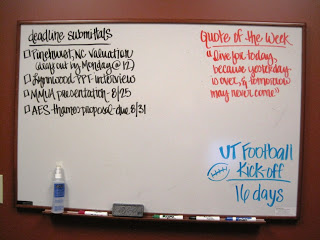 deadline submittals
Pinehurst, NC Valuation
(asap out by Monday @ 12)
Lynnwood PPT interview
MMLA presentation - 8/25
AES-thames proposal-due 8/31
Quote of the week
"Live for today,
because yesterday
is over, & tomorrow
may never come"
UT Football
Kick-off
16 days